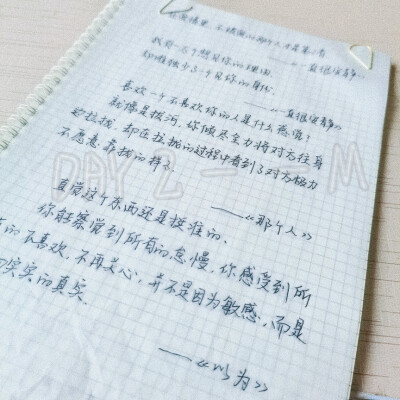 在爱情里,不被爱的那个人才是第三者
——《一直很安静》
我有一万个想见你的理由
却唯独少了一个见你的身份
——《一直很安静》
喜欢一个不喜欢你的人是什么感觉?
就像是拔河,你倾尽全力将对方往身
边拉拢,却在拉拢的过程中看到了对方极力
不愿意靠拢的样子.
——《那个人》
DAY 2 — M
直觉这个东西还是挺准的.
你能察觉到所有的怠慢.你感受到所
有的不喜欢、不再关心,并不是因为敏感.而是
实实的真实.
——《以为》